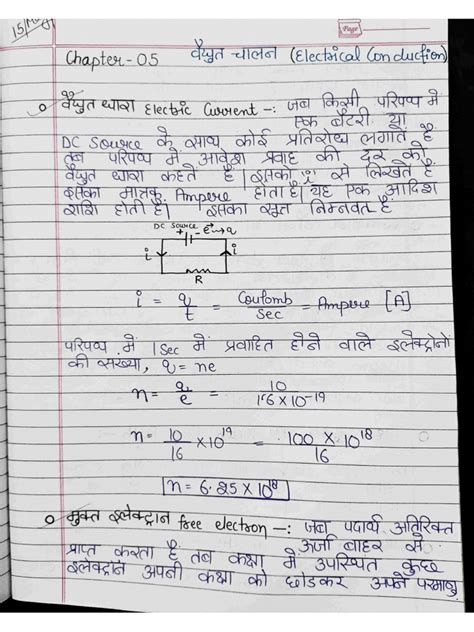 15/May
Page
Chapter-05 वैद्युत चालन (Electrical Conduction)
वैद्युत धारा Electric Current -: जब किसी परिपथ में
एक बैटरी या
DC Source के साथ कोई प्रतिरोध लगाते है
तब परिपथ में आवेश प्रवाह की दर को
वैद्युत धारा कहते हैं। इसको i से लिखते हैं
इसका मात्रक Ampere होता है। यह एक अदिश
राशि होती है। इसका सूत्र निम्नवत है
DC Source
i i
R
i = q/t = Coulomb/Sec = Ampere [A]
परिपथ में 1Sec में प्रवाहित होने वाले इलेक्ट्रोनों
की संख्या, q = ne
n = q/e = 10/1.6×10-19
n = 10/16 ×10^19 = 100 × 10^18/16
n = 6.25×10^18
मुक्त इलेक्ट्रान free electron -: जब पदार्थ अतिरिक्त
ऊर्जा बाहर से
प्राप्त करता है तब कक्षा में उपस्थित कुछ
इलेक्ट्रान अपनी कक्षा को छोडकर अपने परमाणु